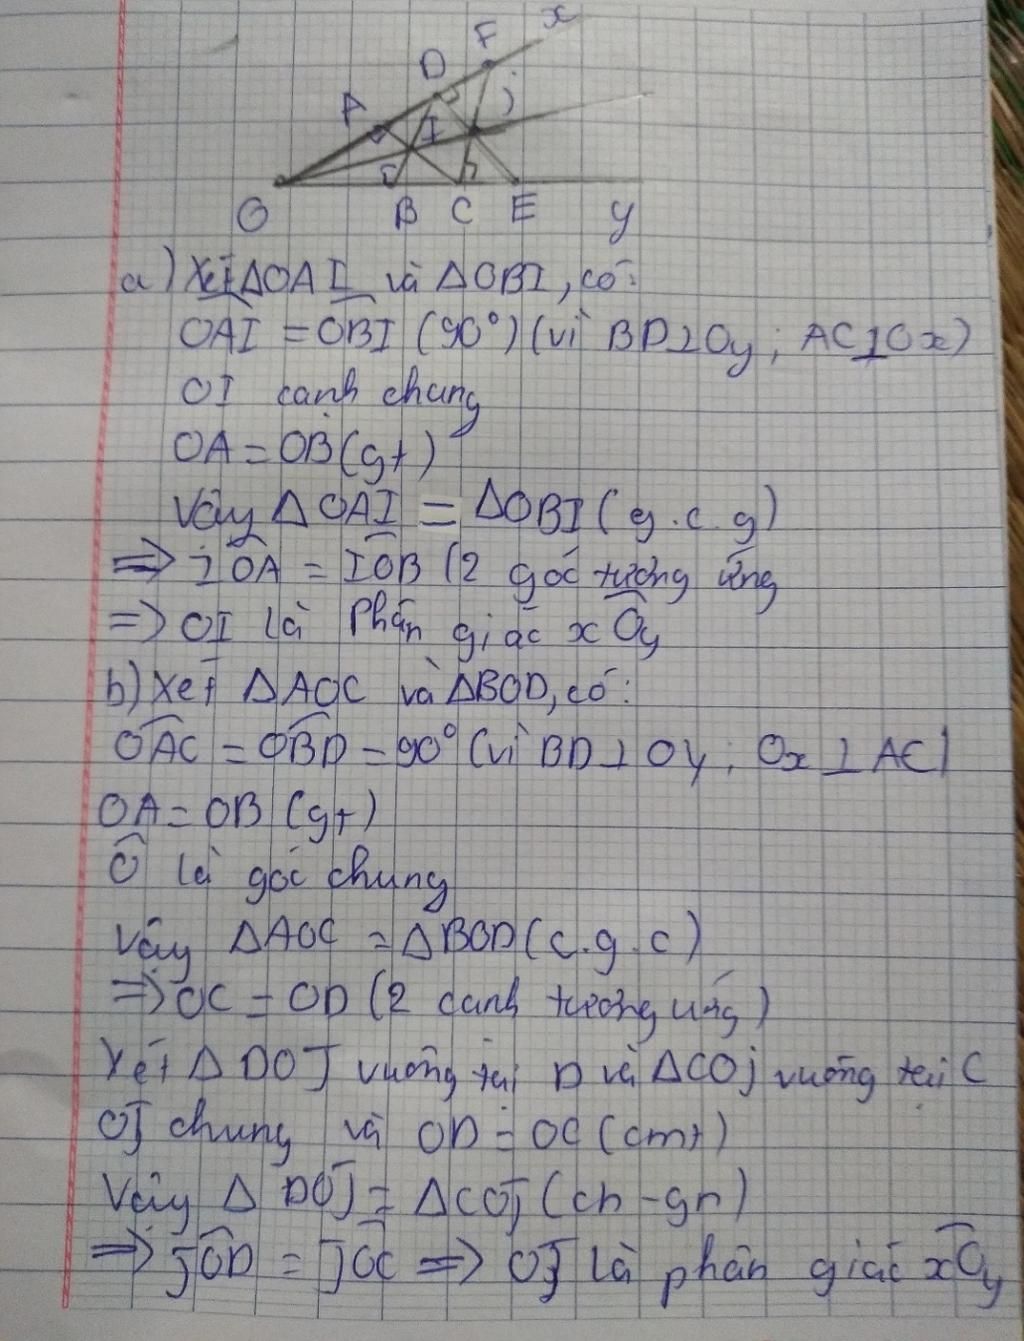 x
F
D
j
A
I
O
B C E y
a) Xét ΔOAI và ΔOBI, có:
OAI = OBI (90°) (vì BD⊥Oy; AC⊥Ox)
OI cạnh chung
OA = OB (gt)
Vậy ΔOAI = ΔOBI (g.c.g)
=> IOA = IOB (2 góc tương ứng
=> OI là phân giác xOy
b) Xét ΔAOC và ΔBOD, có:
OAC = OBD = 90° (vì BD⊥Oy; Ox⊥AC)
OA = OB (gt)
Ô là góc chung
Vậy ΔAOC = ΔBOD (c.g.c)
=> OC = OD (2 cạnh tương ứng)
Xét ΔDOJ vuông tại D và ΔCOj vuông tại C
OJ chung và OD = OC (cmt)
Vậy ΔDOJ = ΔCOJ (ch-gn)
=> JOD = JOC => OJ là phân giác xOy